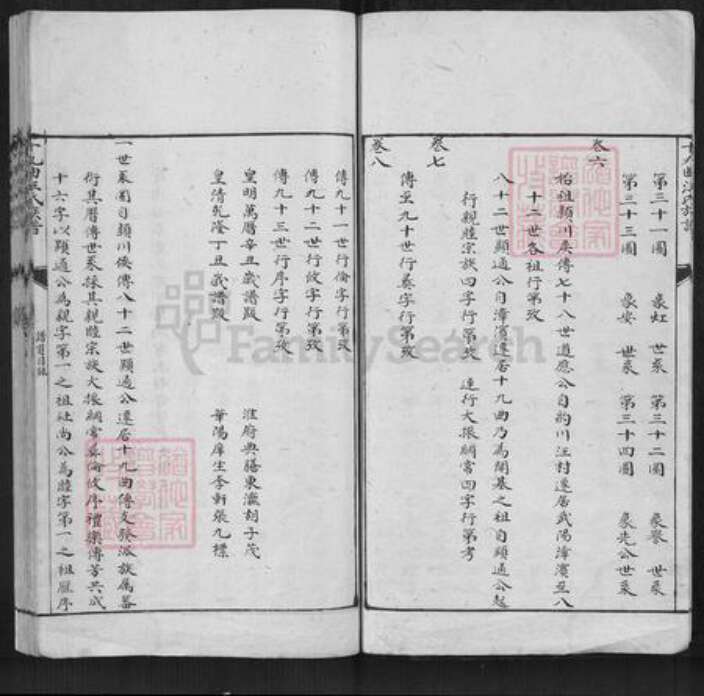 第三十一圖 彖虹 世系 第三十二圖 彖黎 世系
第三十三圖 彖安 世系 第三十四圖 彖先公世系
卷六
始祖穎川矦傳七十八世道應公自韵川汪村遷居武陽漳濱至八
十二世各祖行第攷
八十二世顯通公自漳濱遷居十九曲乃為開基之祖自顯通公起
行親睦宗族四字行第攷 連行大振綱常四字行第考
卷七
傳至九十世行彝字行第攷
卷八
傳九十一世行倫字行第攷
傳九十二世行攸字行第攷
傳九十三世行序字行第攷
皇明萬曆辛丑歲譜跋 淮府典膳東瀛胡子茂
皇清乾隆丁丑歲譜跋 華陽庠生李軒張九標
一世系圖自穎川矦傳八十二世顯通公遷居十九曲傳文 派族屬蕃
衍其曆傳世系採其親睦宗族大振綱常彝倫攸序禮樂傳芳共成
十六字以顯通公為親字第一之祖 尚公為睦字第一之祖雁序
譜首目錄
FamilySearch